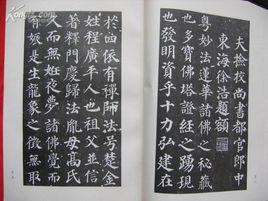 夫撿挍尚書都官郎中
東海徐浩題額
粵妙法蓮華諸佛之秘藏
也多寶佛塔證經之踴現
也發明資乎十力弘建在
扵四依有禪師法號楚金
姓程廣平人也祖父並信
著釋門慶歸法胤母高氏
久而無姙夜夢諸佛覺而
有娠是生龍象之徵無取